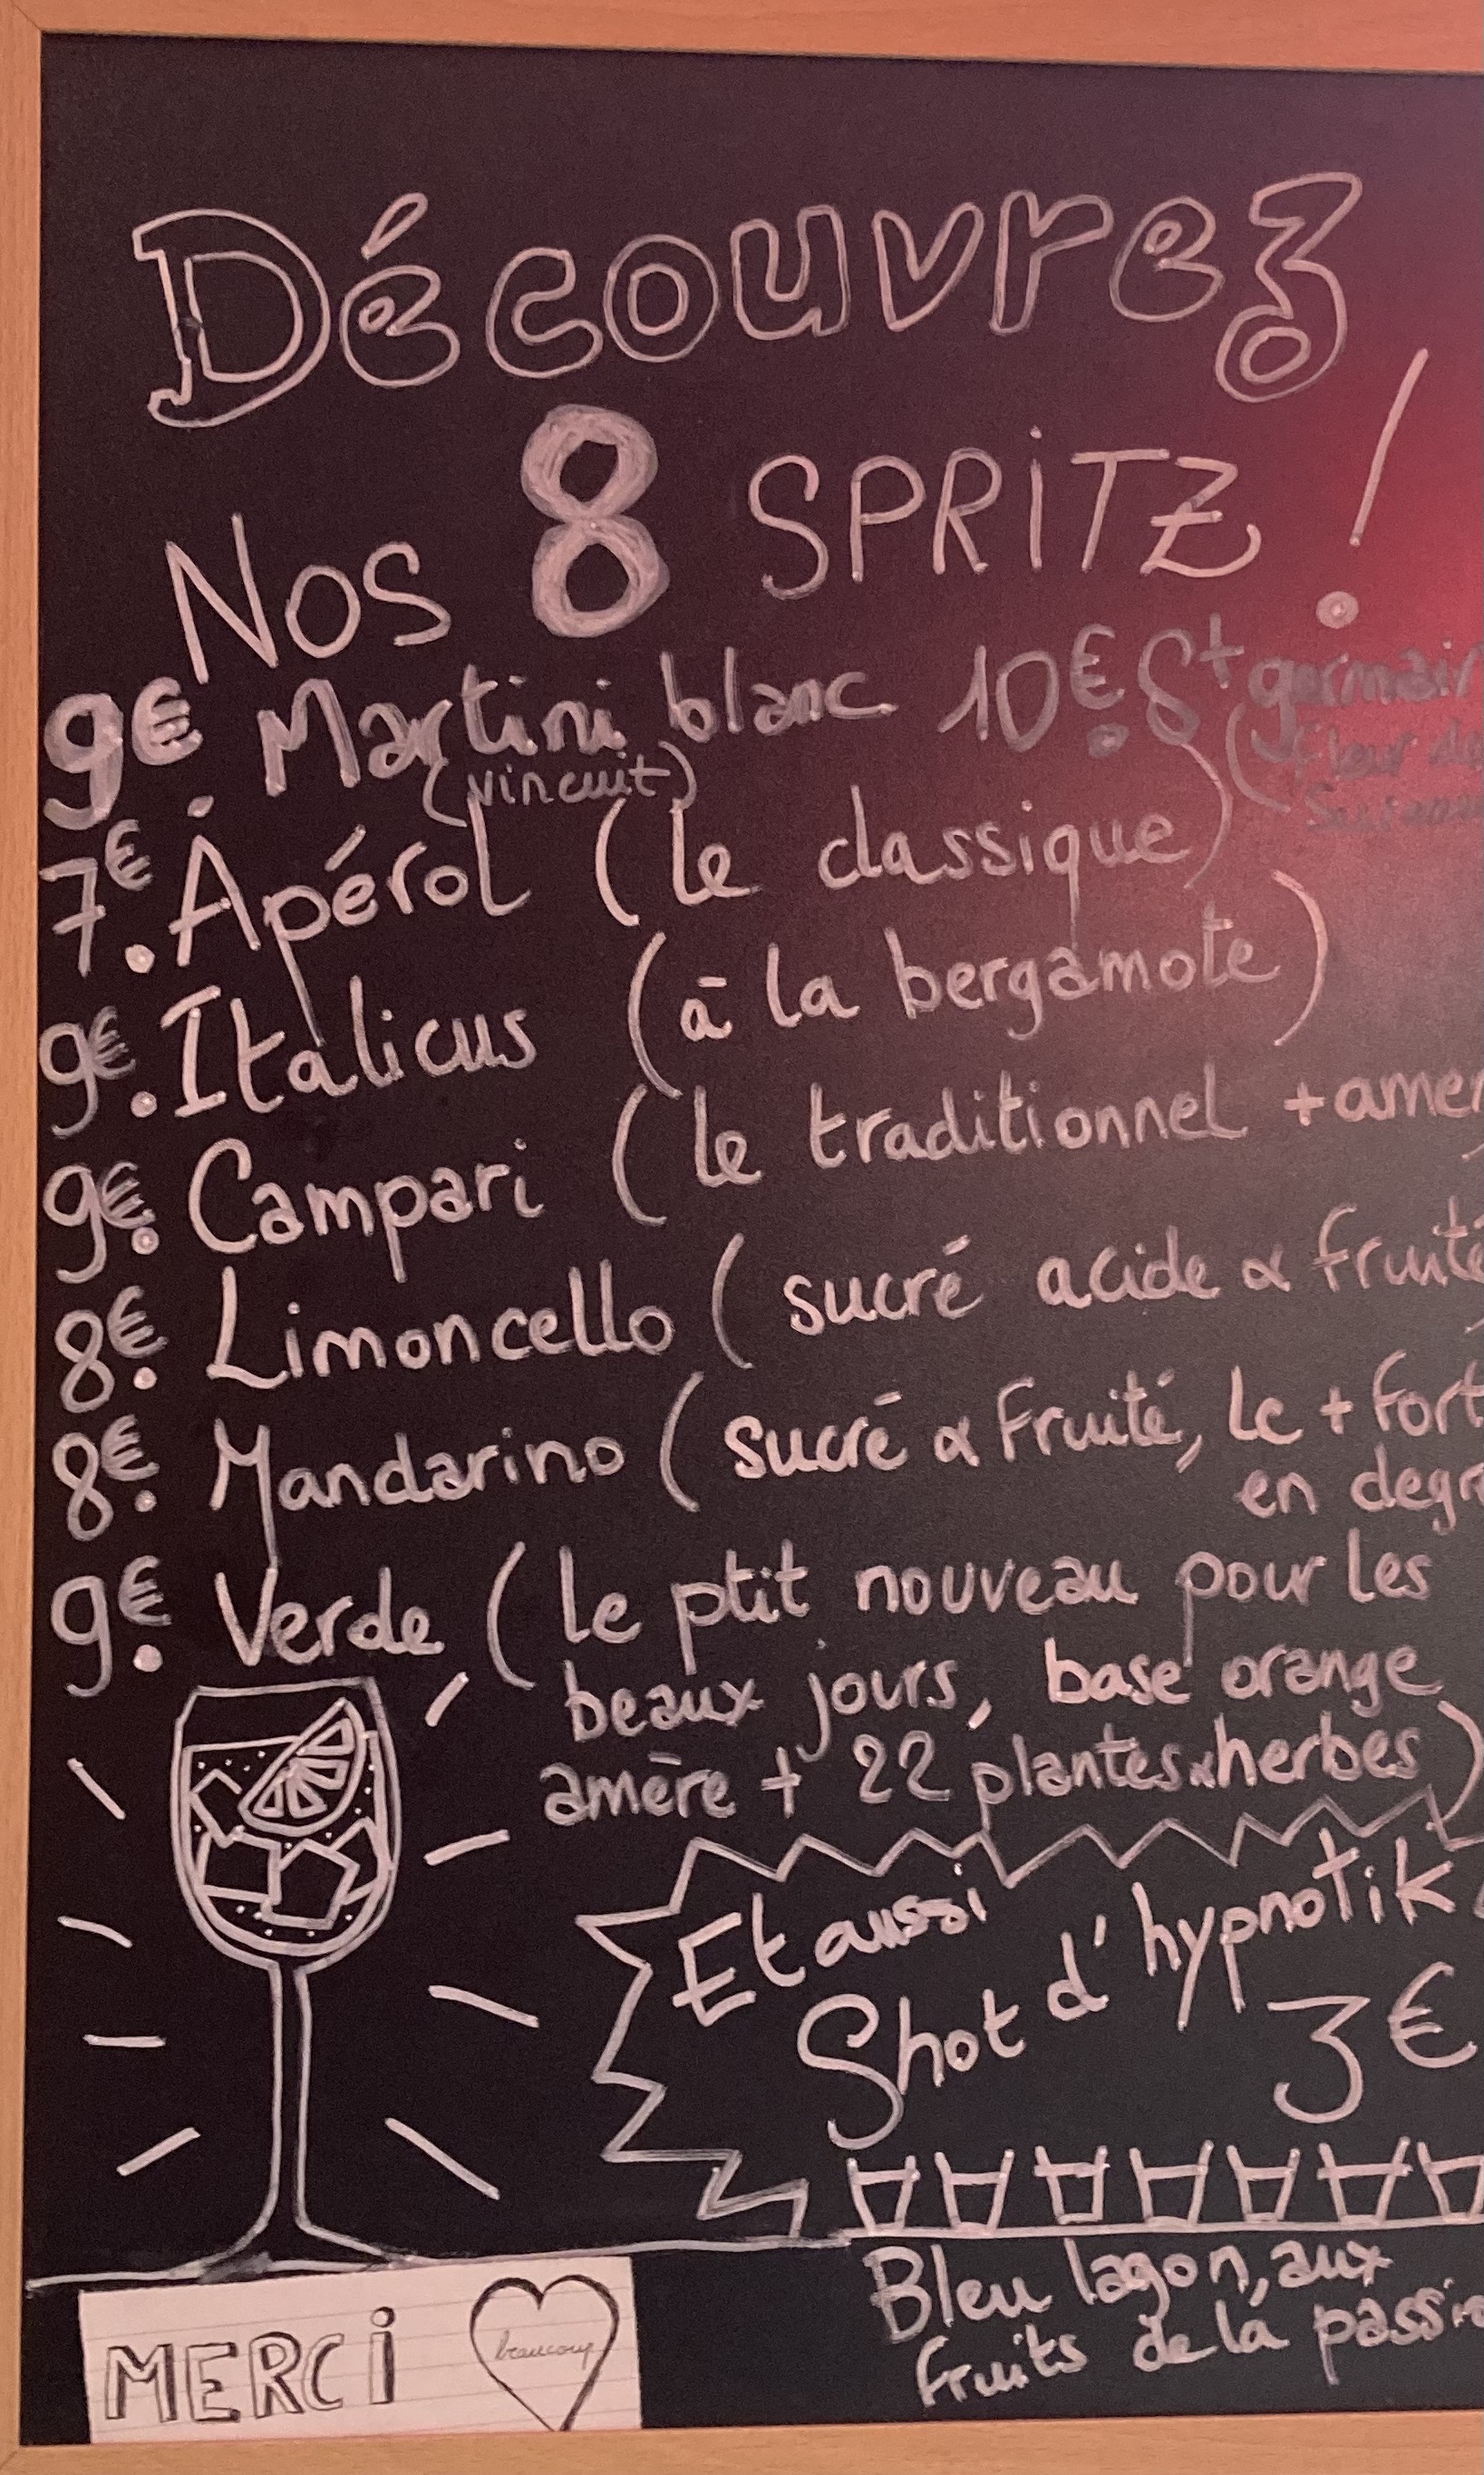 Découvrez
Nos 8 SPRITZ !
9€ Martini blanc 10€. St germain
(vin cuit) (fleur de
7€. Apérol (le classique)
9€. Italicus (à la bergamote)
9€. Campari (le traditionnel + amer
8€. Limoncello (sucré acide & fruité
8€. Mandarino (sucré & Fruité, le + fort
en degr
9€. Verde (le ptit nouveau pour les
beaux jours, base orange
amère + 22 plantes & herbes)
Et aussi
Shot d'hypnotik
3€
Bleu lagon, aux
fruits de la passi
MERCI beaucoup